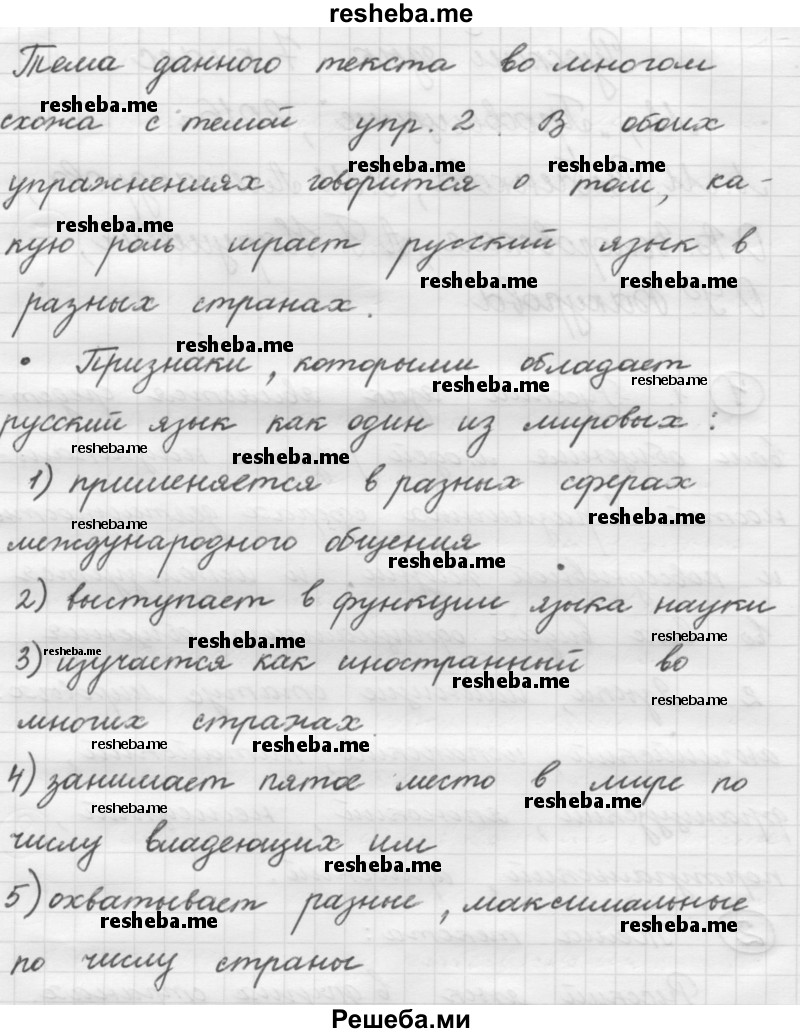 resheba.me
Тема данного текста во многом
resheba.me
схожа с темой упр. 2. В обоих
resheba.me resheba.me
упражнениях говорится о том, ка-
resheba.me
кую роль играет русский язык в
resheba.me resheba.me
разных странах.
resheba.me
• Признаки, которыми обладает
resheba.me resheba.me
русский язык как один из мировых:
resheba.me resheba.me
1) применяется в разных сферах
resheba.me resheba.me
международного общения
resheba.me
2) выступает в функции языка науки
resheba.me resheba.me
3) изучается как иностранный во
resheba.me resheba.me resheba.me
многих странах
resheba.me resheba.me
4) занимает пятое место в мире по
resheba.me resheba.me
числу владеющих им
resheba.me
5) охватывает разные, максимальные
resheba.me resheba.me
по числу страны
Решеба.ми